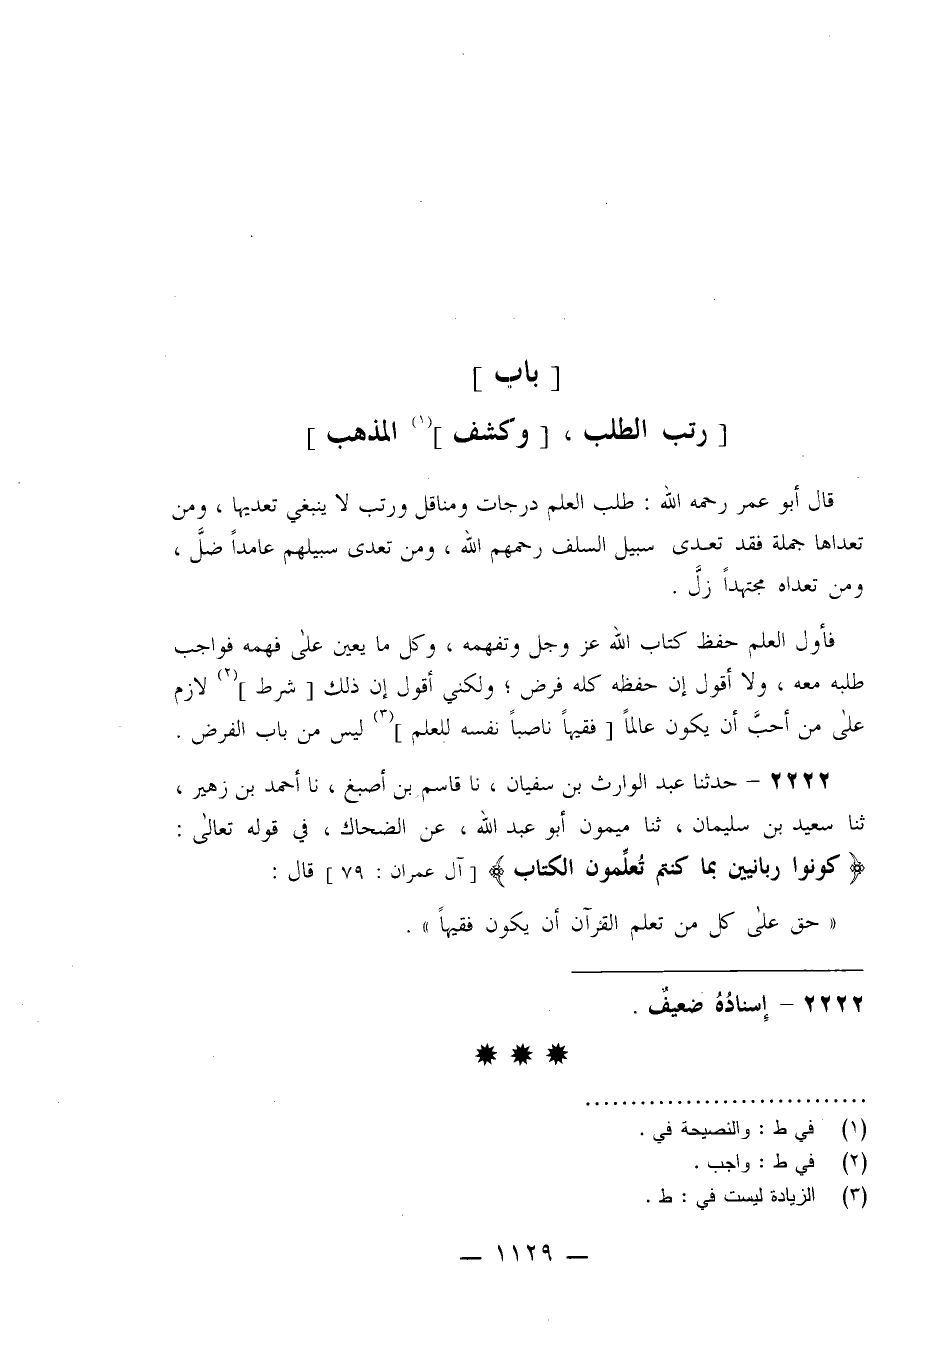 [ باب ]
[ رتب الطلب ، [ وكشف ](١) المذهب ]
قال أبو عمر رحمه الله : طلب العلم درجات ومناقل ورتب لا ينبغي تعديها ، ومن
تعداها جملة فقد تعدى سبيل السلف رحمهم الله ، ومن تعدى سبيلهم عامداً ضلَّ ،
ومن تعداه مجتهداً زلَّ .
فأول العلم حفظ كتاب الله عز وجل وتفهمه ، وكل ما يعين علىٰ فهمه فواجب
طلبه معه ، ولا أقول إن حفظه كله فرض ؛ ولكني أقول إن ذلك [ شرط ](٢) لازم
علىٰ من أحبَّ أن يكون عالماً [ فقيهاً ناصباً نفسه للعلم ](٣) ليس من باب الفرض .
٢٢٢٢ – حدثنا عبد الوارث بن سفيان ، نا قاسم بن أصبغ ، نا أحمد بن زهير ،
ثنا سعيد بن سليمان ، ثنا ميمون أبو عبد الله ، عن الضحاك ، في قوله تعالىٰ :
﴿ كونوا ربانيين بما كنتم تُعلِّمون الكتاب ﴾ [ آل عمران : ٧٩ ] قال :
« حق علىٰ كل من تعلم القرآن أن يكون فقيهاً » .
٢٢٢٢ – إِسنادُهُ ضعيفٌ .
(١) في ط : والنصيحة في .
(٢) في ط : واجب .
(٣) الزيادة ليست في : ط .
– ١١٢٩ –